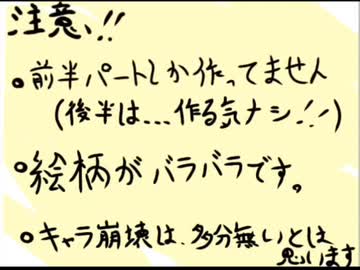 注意!!
・前半パートしか作ってません
(後半は...作る気ナシ!!)
・絵柄がバラバラです。
・キャラ崩壊は、多分無いとは
思います